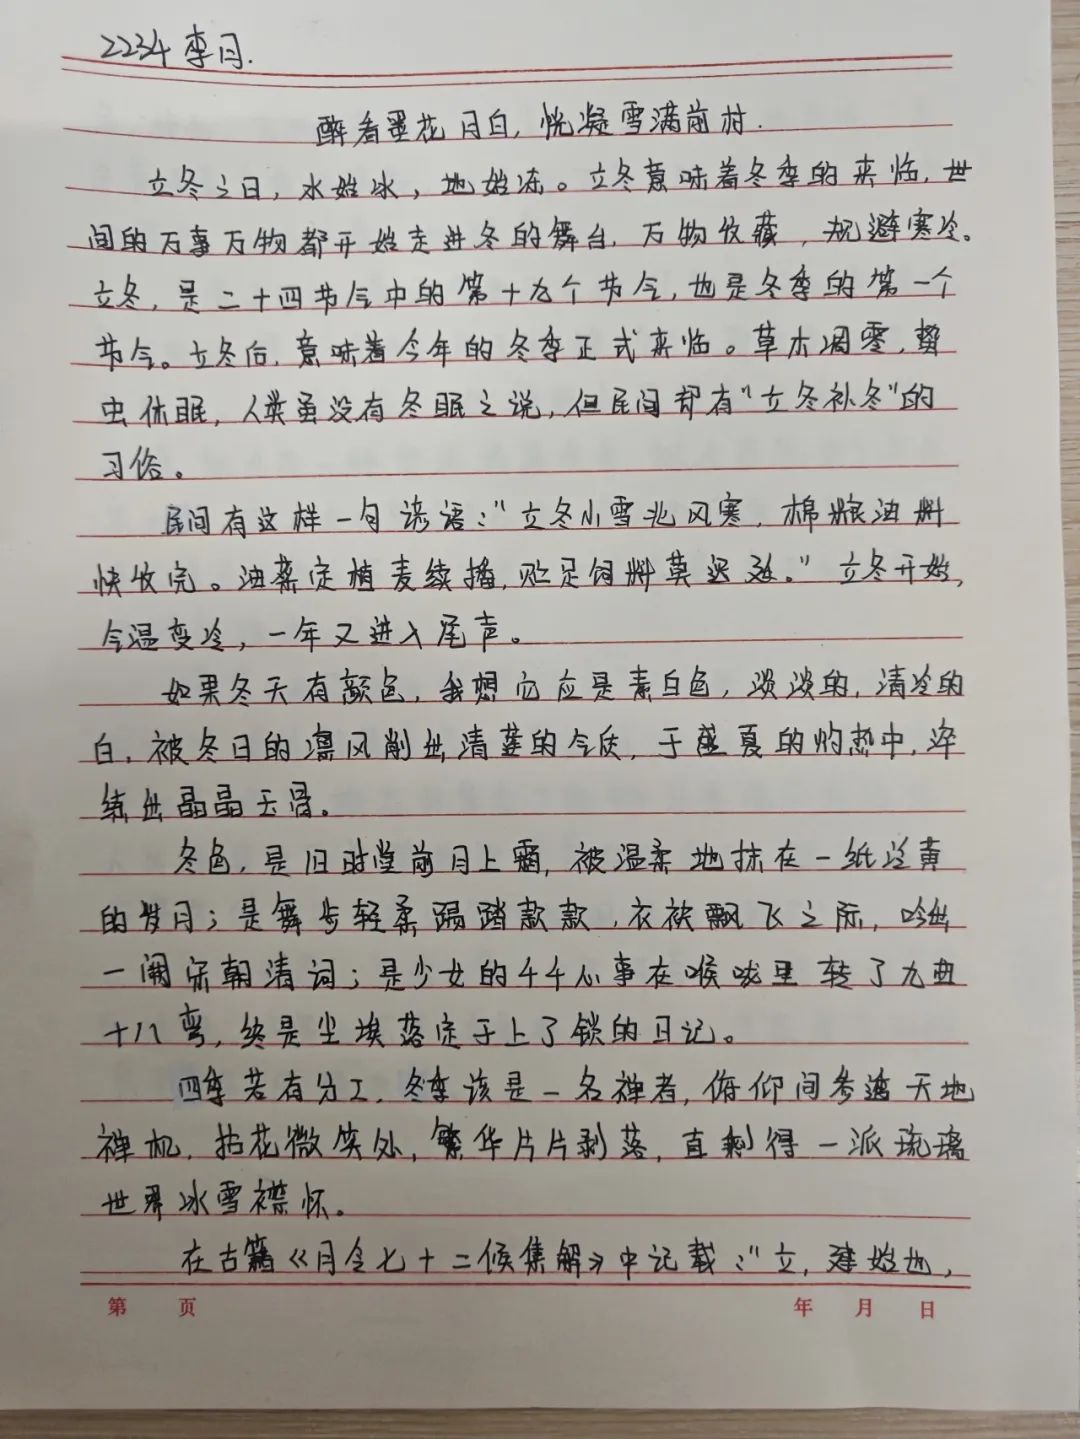 2234 李月.
醉看墨花月白,恍凝雪满前村.
立冬之日,水始冰,地始冻。立冬意味着冬季的来临,世
间的万事万物都开始走进冬的舞台,万物收藏,规避寒冷。
立冬,是二十四节令中的第十九个节令,也是冬季的第一个
节令。立冬后,意味着今年的冬季正式来临。草木凋零,蛰
虫休眠,人类虽没有冬眠之说,但民间却有"立冬补冬"的
习俗。
民间有这样一句谚语:"立冬小雪北风寒,棉粮油料
快收完。油菜定植麦续播,贮足饲料莫迟延。"立冬开始,
气温变冷,一年又进入尾声。
如果冬天有颜色,我想它应是素白色,淡淡的,清冷的
白,被冬日的凛风削出清莲的气质,于盛夏的灼热中,淬
练出晶晶玉骨。
冬色,是旧时堂前月上霜,被温柔地抹在一纸泛黄
的岁月;是舞步轻柔踢踏款款,衣袂飘飞之际,吟出
一阕宋朝清词;是少女的千千心事在喉咙里转了九曲
十八弯,终是尘埃落定于上了锁的日记。
四季若有分工,冬季该是一名禅者,俯仰间参透天地
禅机,拈花微笑处,繁华片片剥落,直剩得一派琉璃
世界冰雪襟怀。
在古籍《月令七十二候集解》中记载:"立,建始也,
第 页 年 月 日